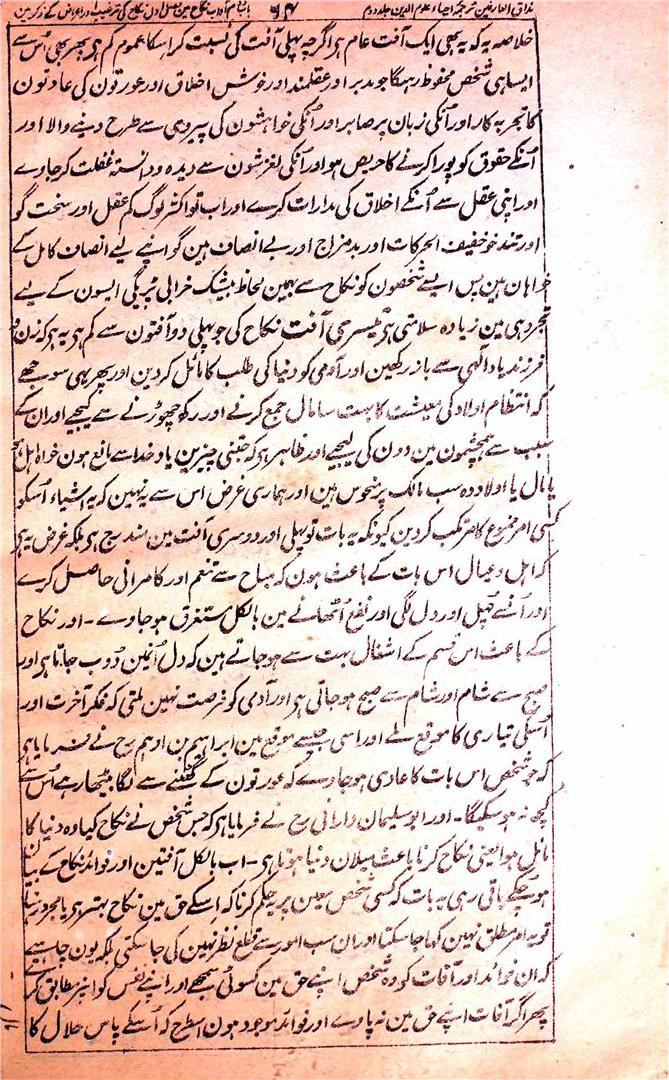 مذاق العارفین ترجمہ احیاء علوم الدین جلد دوم
خلاصہ یہ کہ یہ بھی ایک آفت عام ہی اگرچہ پہلی آفت کی نسبت کر اسکا عموم کم ہی پھر بھی اس سے
ایسا ہی شخص محفوظ رہیگا جو مدبر اور عقلمند اور خوش اخلاق اور عورتون کی عادتون
کا تجربہ کار اور اُنکی زبان پر صابر اور اُنکی خواہشون کی پیروی سے طرح دینے والا اور
اُنکے حقوق کو پورا کرنے کا حریص ہو اور اُنکی لغزشون سے دیدہ و دانستہ غفلت کر جاوے
اور اپنی عقل سے اُنکے اخلاق کی مدارات کرے اور اب تو اکثر لوگ کم عقل اور سخت گو
اور تند خو خفیف الحرکات اور بدمزاج اور بے انصاف ہین گو اپنے لیے انصاف کامل کے
خواہان ہین پس ایسے شخصون کو نکاح سے بہمین لحاظ بیشک خرابی پڑیگی ایسون کے لیے
مجرد ہی مین زیادہ سلامتی ہی تیسری آفت نکاح کی جو پہلی دو آفتون سے کم ہی یہ ہی کہ زن و
فرزند یاد الٰہی سے باز رکھین اور آدمی کو دنیا کی طلب کا مائل کردین اور پھر یہی سوجھے
کہ انتظام اولاد کی معیشت کا بہت سا مال جمع کرنے اور رکھ چھوڑنے سے کیجیے اور ان کے
سبب سے ہمچشمون مین دون کی لیجیے اور ظاہر ہی کہ جتنی چیزین یاد خدا سے مانع ہون خواہ اہل ہو
یا مال یا اولاد وہ سب مالک پر نحوس ہین اور ہماری غرض اس سے یہ نہین کہ یہ اشیاء اُسکو
کسی امر ممنوع کا مرتکب کردین کیونکہ یہ بات تو پہلی اور دوسری آفت مین مندرج ہی بلکہ غرض یہ ہی
کہ اہل و عیال اس بات کے باعث ہون کہ مباح سے تنعم اور کامرانی حاصل کرے
اور اُنسے چہل اور دل لگی اور نفع اُٹھانے مین بالکل مستغرق ہو جاوے۔ اور نکاح
کے باعث اس قسم کے اشغال بہت سے ہو جاتے ہین کہ دل اُنمین ڈوب جاتا ہی اور
صبح سے شام اور شام سے صبح ہو جاتی ہی اور آدمی کو فرصت نہین ملتی کہ فکر آخرت اور
اُسکی تیاری کا موقع ملے اور اسی جیسے موقع مین ابراہیم بن ادہم رح نے فرمایا ہی
کہ جو شخص اس بات کا عادی ہو جاوے کہ عورتون کے گھٹنے سے لگا بیٹھا رہے اُس سے
کچھ نہ ہو سکیگا۔ اور ابو سلیمان دارانی رح نے فرمایا ہی کہ جس شخص نے نکاح کیا وہ دنیا کا
مائل ہوا یعنی نکاح کرنا باعث میلان دنیا ہوتا ہی۔ اب بالکل آفتین اور فوائد نکاح کے بیان
ہو چکے باقی رہی یہ بات کہ کسی شخص معین پر یہ حکم کرنا کہ اسکے حق مین نکاح بہتر ہی یا مجرد رہنا
تو یہ امر مطلق نہین کہا جا سکتا اور ان سب امور سے قطع نظر نہین کی جا سکتی بلکہ یون چاہیے
کہ ان فوائد اور آفات کو وہ شخص اپنے حق مین کسوٹی سمجھے اور اپنے نفس کو اُنپر مطابق کرے
پھر اگر آفات اپنے حق مین نہ پاوے اور فوائد موجود ہون اسطرح کہ اُسکے پاس حلال کا